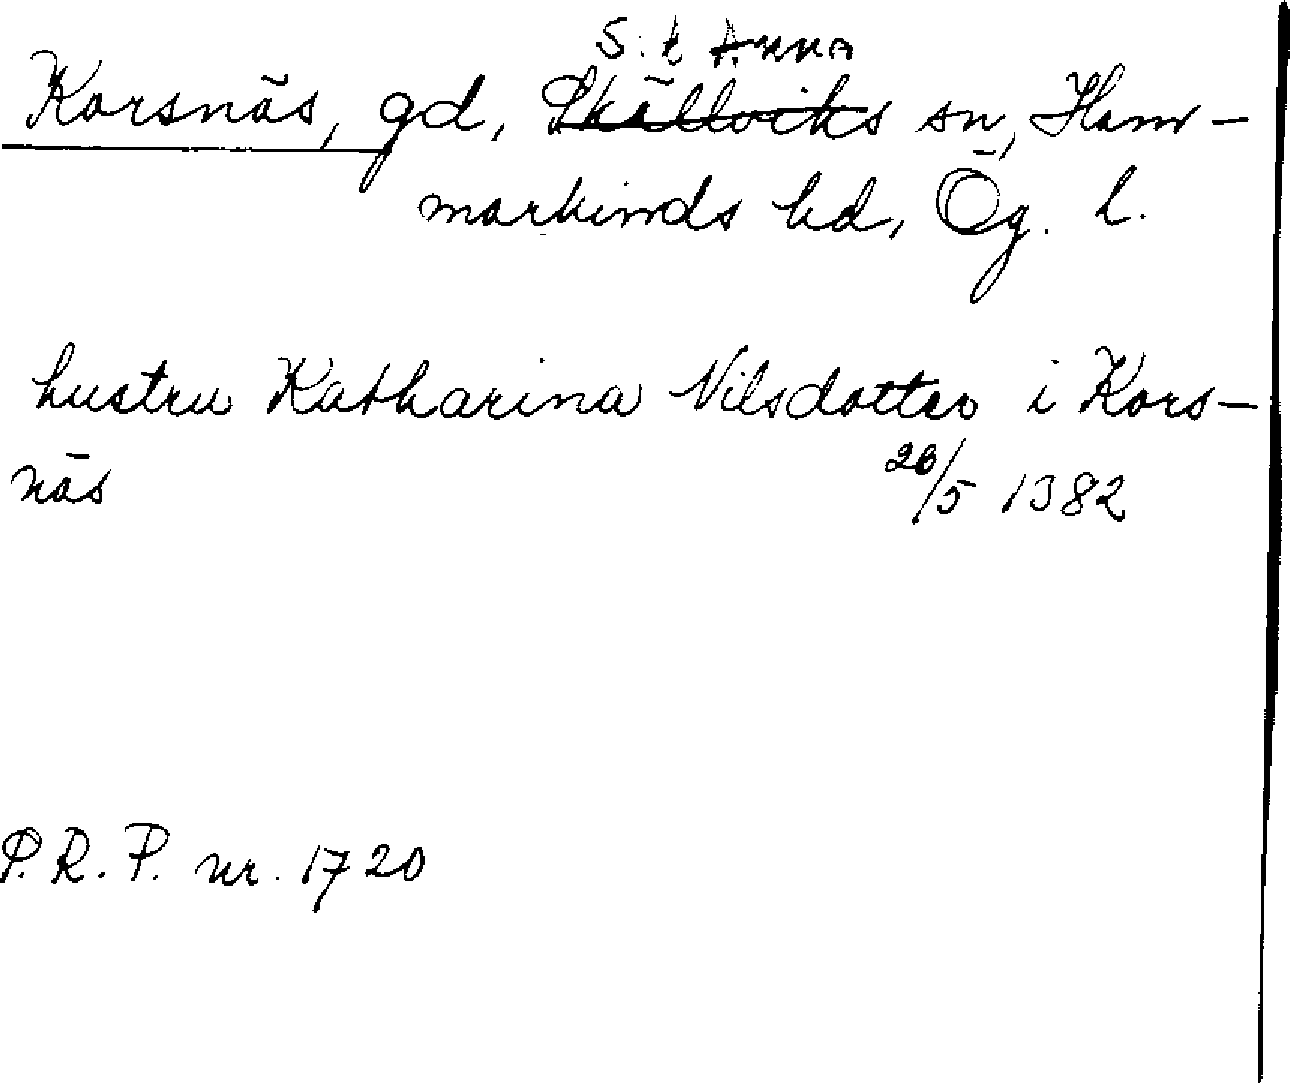 S:t Anna
Korsnäs, gd, Skällviks sn, Ham-
markinds hd, Ög. l.
hustru Katharina Nilsdotter i Kors-
näs 26/5 1382
P.R.P. nr. 1720